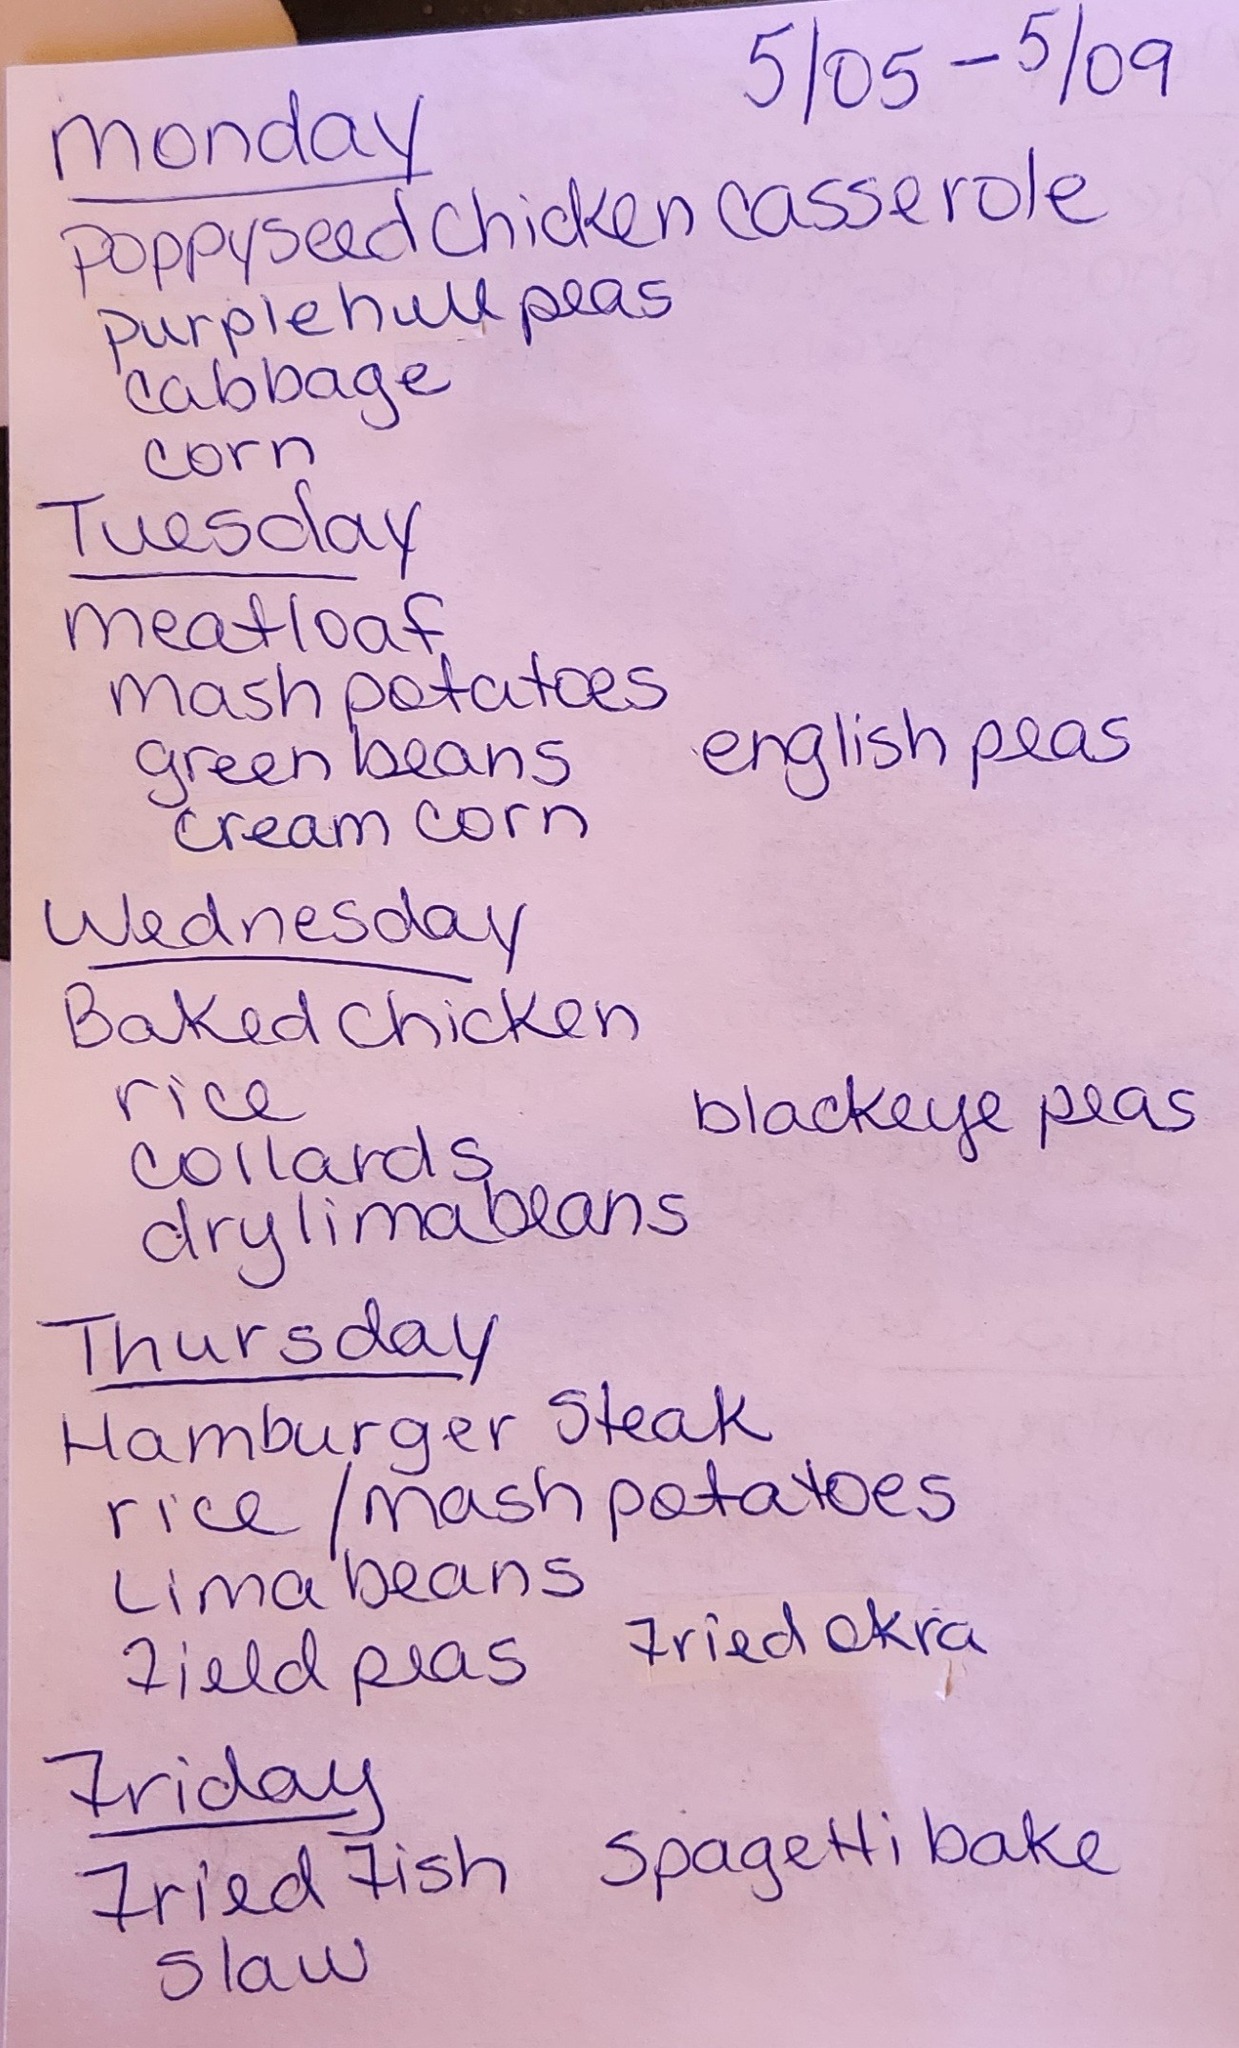 5/05 - 5/09
Monday
poppyseed chicken casserole
purple hull peas
cabbage
corn
Tuesday
meatloaf
mash potatoes
green beans english peas
cream corn
Wednesday
Baked chicken
rice blackeye peas
collards
dry lima beans
Thursday
Hamburger Steak
rice / mash potatoes
Lima beans
Field peas Fried okra
Friday
Fried Fish Spagetti bake
slaw